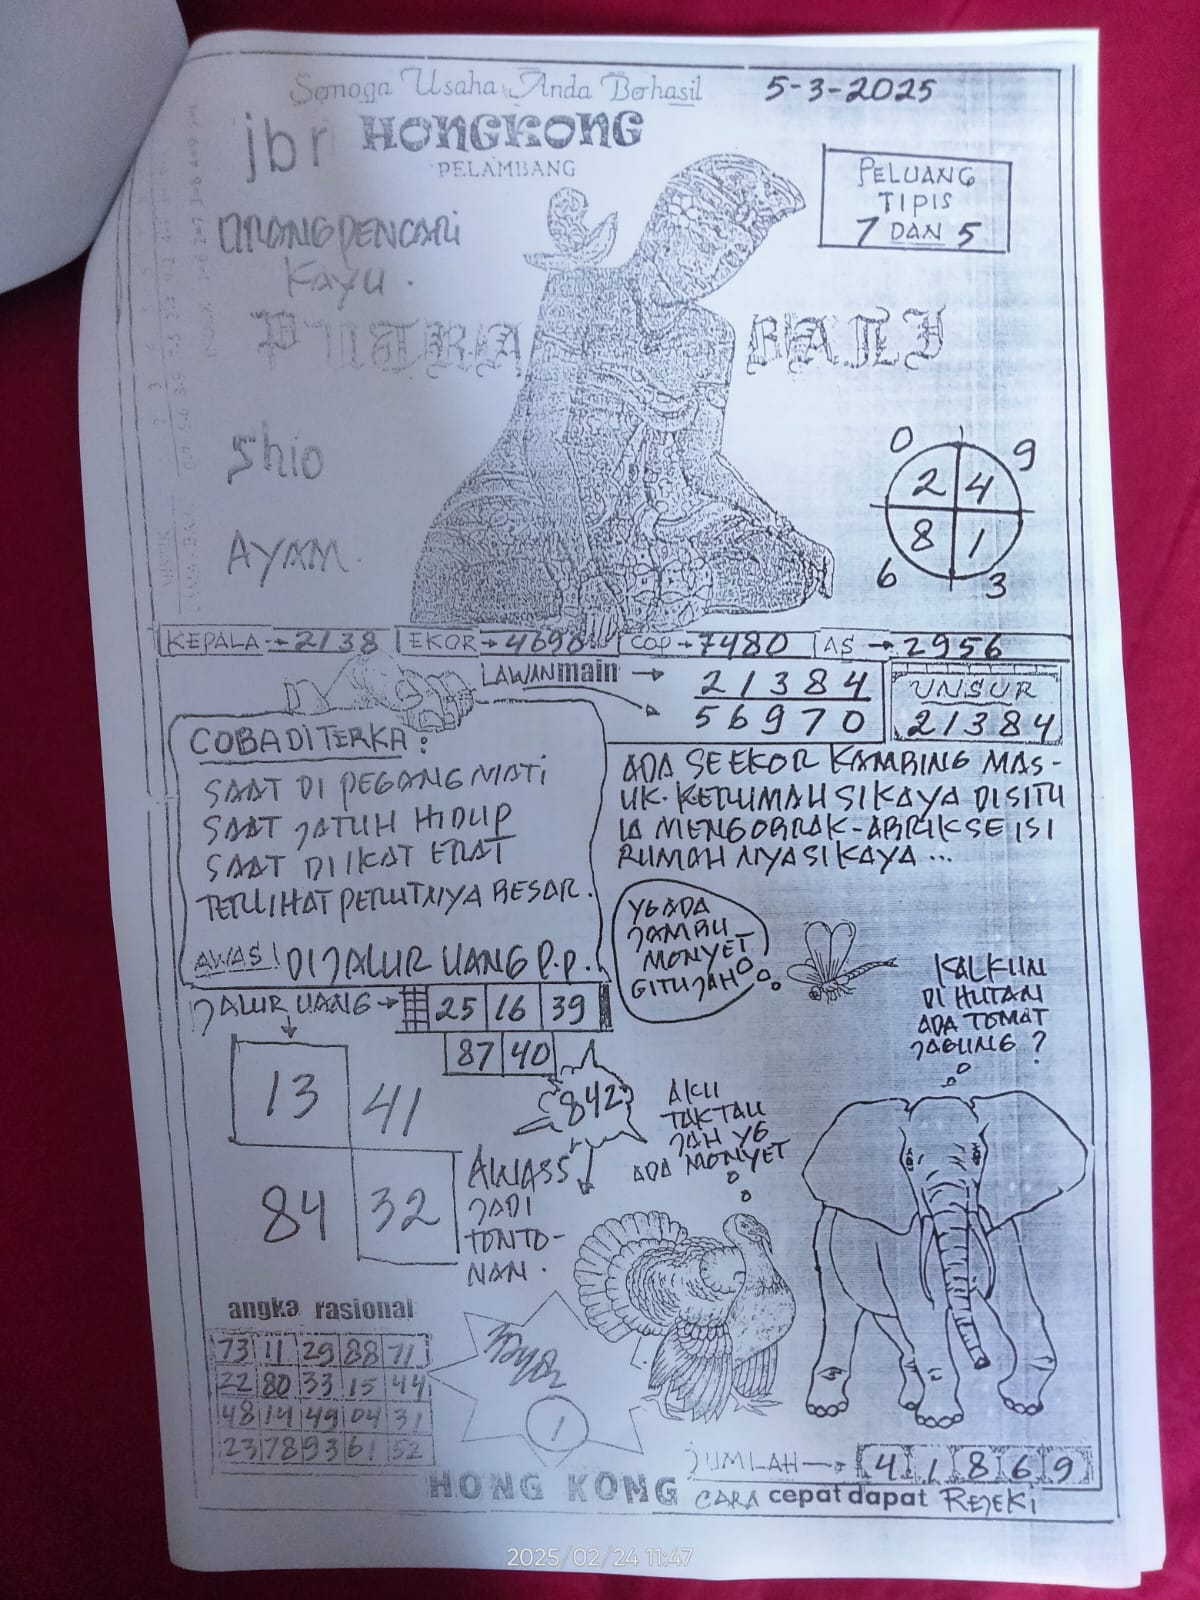 Semoga Usaha Anda Berhasil
5-3-2025
jbr HONGKONG
PELAMBANG
PELUANG
TIPIS
7 DAN 5
ORANG PENCARI
KAYU.
PUTRA BALI
Shio
AYAM.
0 9
2 4
8 1
6 3
KEPALA → 2138 EKOR → 4690 COP → 7480 AS → 2956
LAWAN main → 21384
56970
UNSUR
21384
COBA DITERKA :
SAAT DI PEGANG MATI
SAAT JATUH HIDUP
SAAT DI IKAT ERAT
TERLIHAT PERUTNYA BESAR.
AWAS! DIJALUR UANG P.P.
ADA SEEKOR KAMBING MAS-
UK. KERUMAH SIKAYA DISITU
IA MENGOBRAK-ABRIK SEISI
RUMAH NYA SIKAYA ...
YG ADA
JAMBU
MONYET
GITU JAH
KALKUN
DI HUTAN
ADA TOMAT
JAGUNG ?
JALUR UANG → 25 16 39
87 40
13 41
84 32
842
AWASS
JADI
TONTO-
NAN.
AKU
TAK TAU
JAH YG
ADA MONYET
angka rasional
73 11 29 88 71
22 80 33 15 44
48 14 49 04 31
23 78 93 61 52
1
JUMLAH → 4 1 8 6 9
HONG KONG CARA cepat dapat REJEKI
2025/02/24 11:47